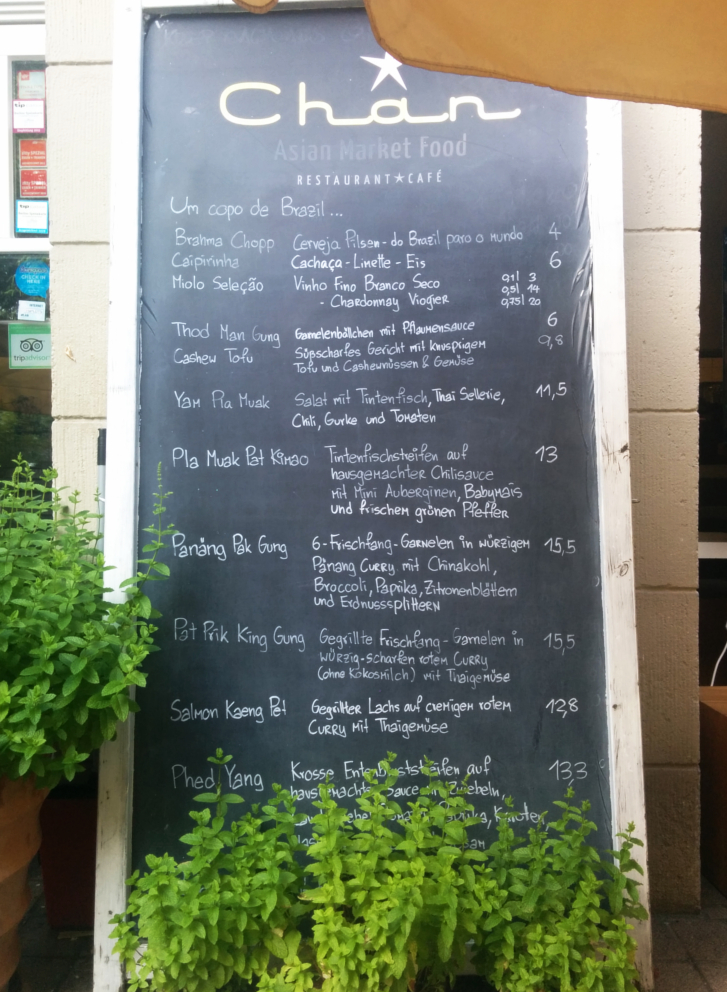 Chan
Asian Market Food
RESTAURANT★CAFÉ
Um copo de Brazil...
Brahma Chopp Cerveja Pilsen - do Brazil para o mundo 4
Caipirinha Cachaça - Limette - Eis 6
Miolo Seleção Vinho Fino Branco Seco 0,1l 3
- Chardonnay Viogier 0,5l 14
0,75l 20
Thod Man Gung Garnelenbällchen mit Pflaumensauce 6
Cashew Tofu Süßscharfes Gericht mit knusprigem 9,8
Tofu und Cashewnüssen & Gemüse
Yam Pla Muak Salat mit Tintenfisch, Thai Sellerie, 11,5
Chili, Gurke und Tomaten
Pla Muak Pat Kimao Tintenfischsteifen auf 13
hausgemachter Chilisauce
mit Mini Auberginen, Babymais
und frischem grünen Pfeffer
Panäng Pak Gung 6-Frischfang-Garnelen in würzigem 15,5
Panang Curry mit Chinakohl,
Broccoli, Paprika, Zitronenblättern
und Erdnusssplittern
Pat Prik King Gung Gegrillte Frischfang-Garnelen in 15,5
würzig-scharfen rotem Curry
(ohne Kokosmilch) mit Thaigemüse
Salmon Kaeng Pet Gegrillter Lachs auf cremigem rotem 12,8
Curry mit Thaigemüse
Phed Yang Krosse Entenbruststreifen auf 13,3
Sauce Zwiebeln,
Paprika, Karotten,
tripadvisor